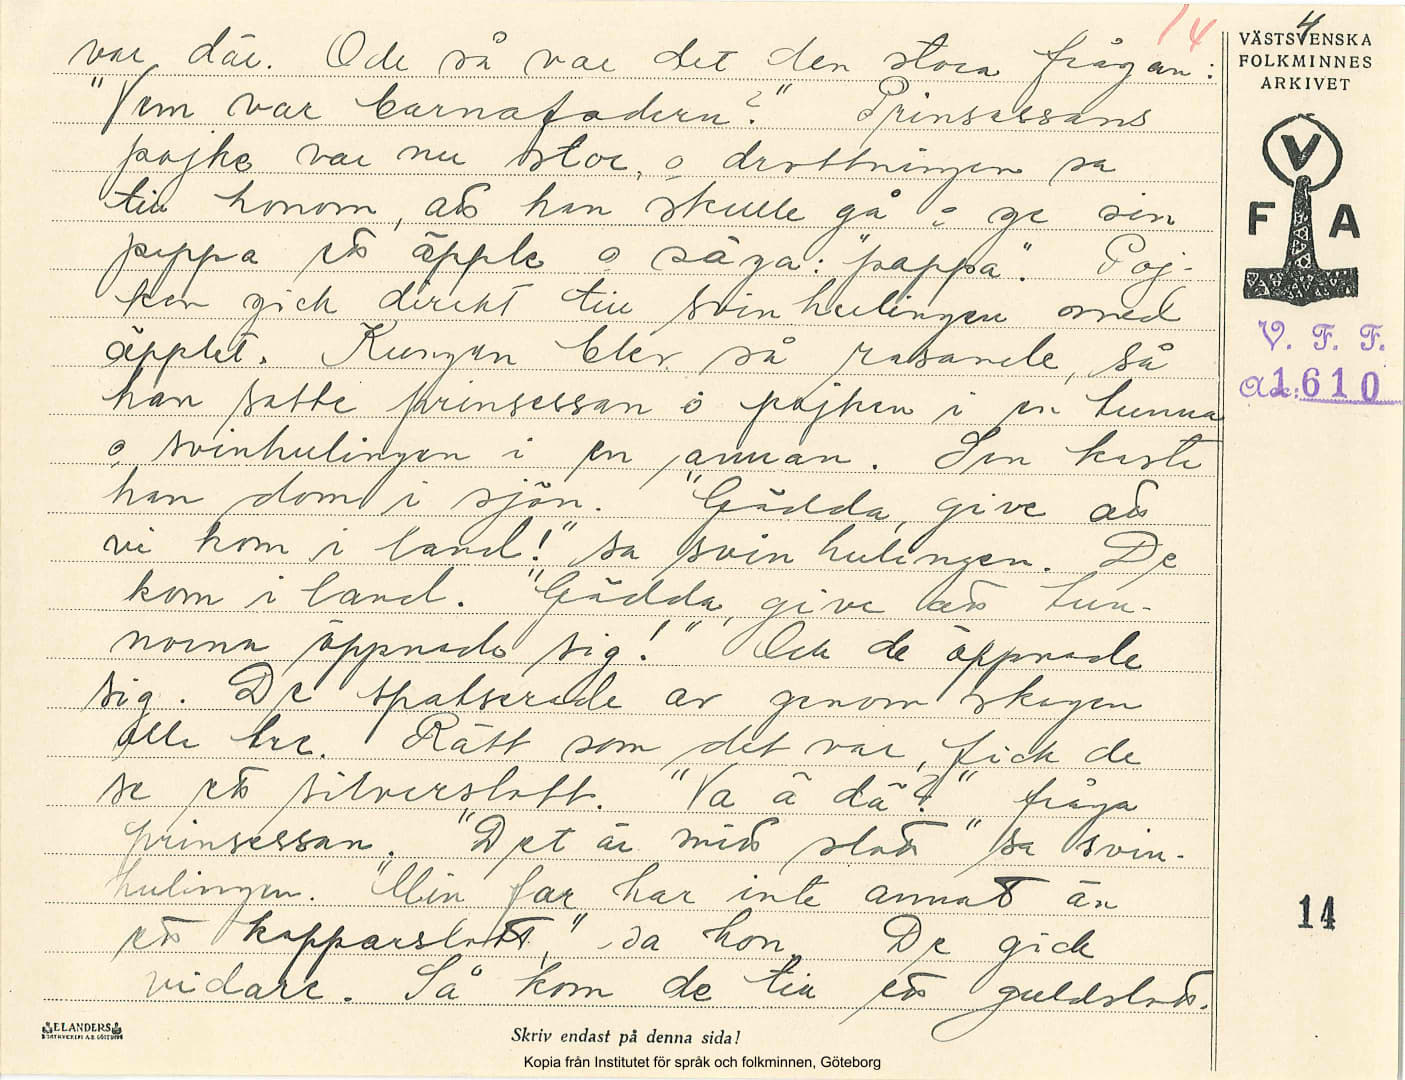 14
var där. Ock så var det den stora frågan:
"Vem var barnafadern?" Prinsessans
pojke var nu stor, o drottningen sa
till honom, att han skulle gå o ge sin
pappa ett äpple o säga: "pappa". Poj-
ken gick direkt till svinhulingen med
äpplet. Kungen blev så rasande, så
han satte prinsessan o pojken i en tunna
o svinhulingen i en annan. Sen kaste
han dom i sjön. "Gädda, give att
vi kom i land!" sa svinhulingen. De
kom i land. "Gädda, give att tun-
norna öppnade sig!" Och de öppnade
sig. De spatserade av genom skogen
alla tre. Rätt som det var, fick de
se ett silverslott. "Va ä dä?" fråga
prinsessan. "Det är mitt slott" sa svin-
hulingen. "Min far har inte annat än
ett kopparslott," sa hon. De gick
vidare. Så kom de till ett guldslott.
4
VÄSTSVENSKA
FOLKMINNES
ARKIVET
V
F A
V. F. F.
Acc: 1610
14
ELANDERS
BOKTRYCKERI A.B. GÖTEBORG
Skriv endast på denna sida!
Kopia från Institutet för språk och folkminnen, Göteborg